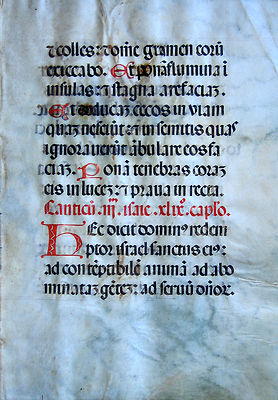 ⁊ colles: ⁊ om̄e gramen eorū
exiccabo. Et ponā flumina ī
insulas: ⁊ stagna arefaciaȝ.
Et educaȝ cecos in viam
quaȝ nesciūt: ⁊ in semitis quas
ignoraverūt ābulare eos fa
ciaȝ. Ponā tenebras coraȝ
eis in luceȝ: ⁊ prava in recta.
Canticū. iij. isaie. xlix. caplo.
Hec dicit dominus redem
ptor israel sanctus eiꝰ:
ad contēptibilē animā ad abo
minataȝ gētez: ad servū dn̄oꝝ.